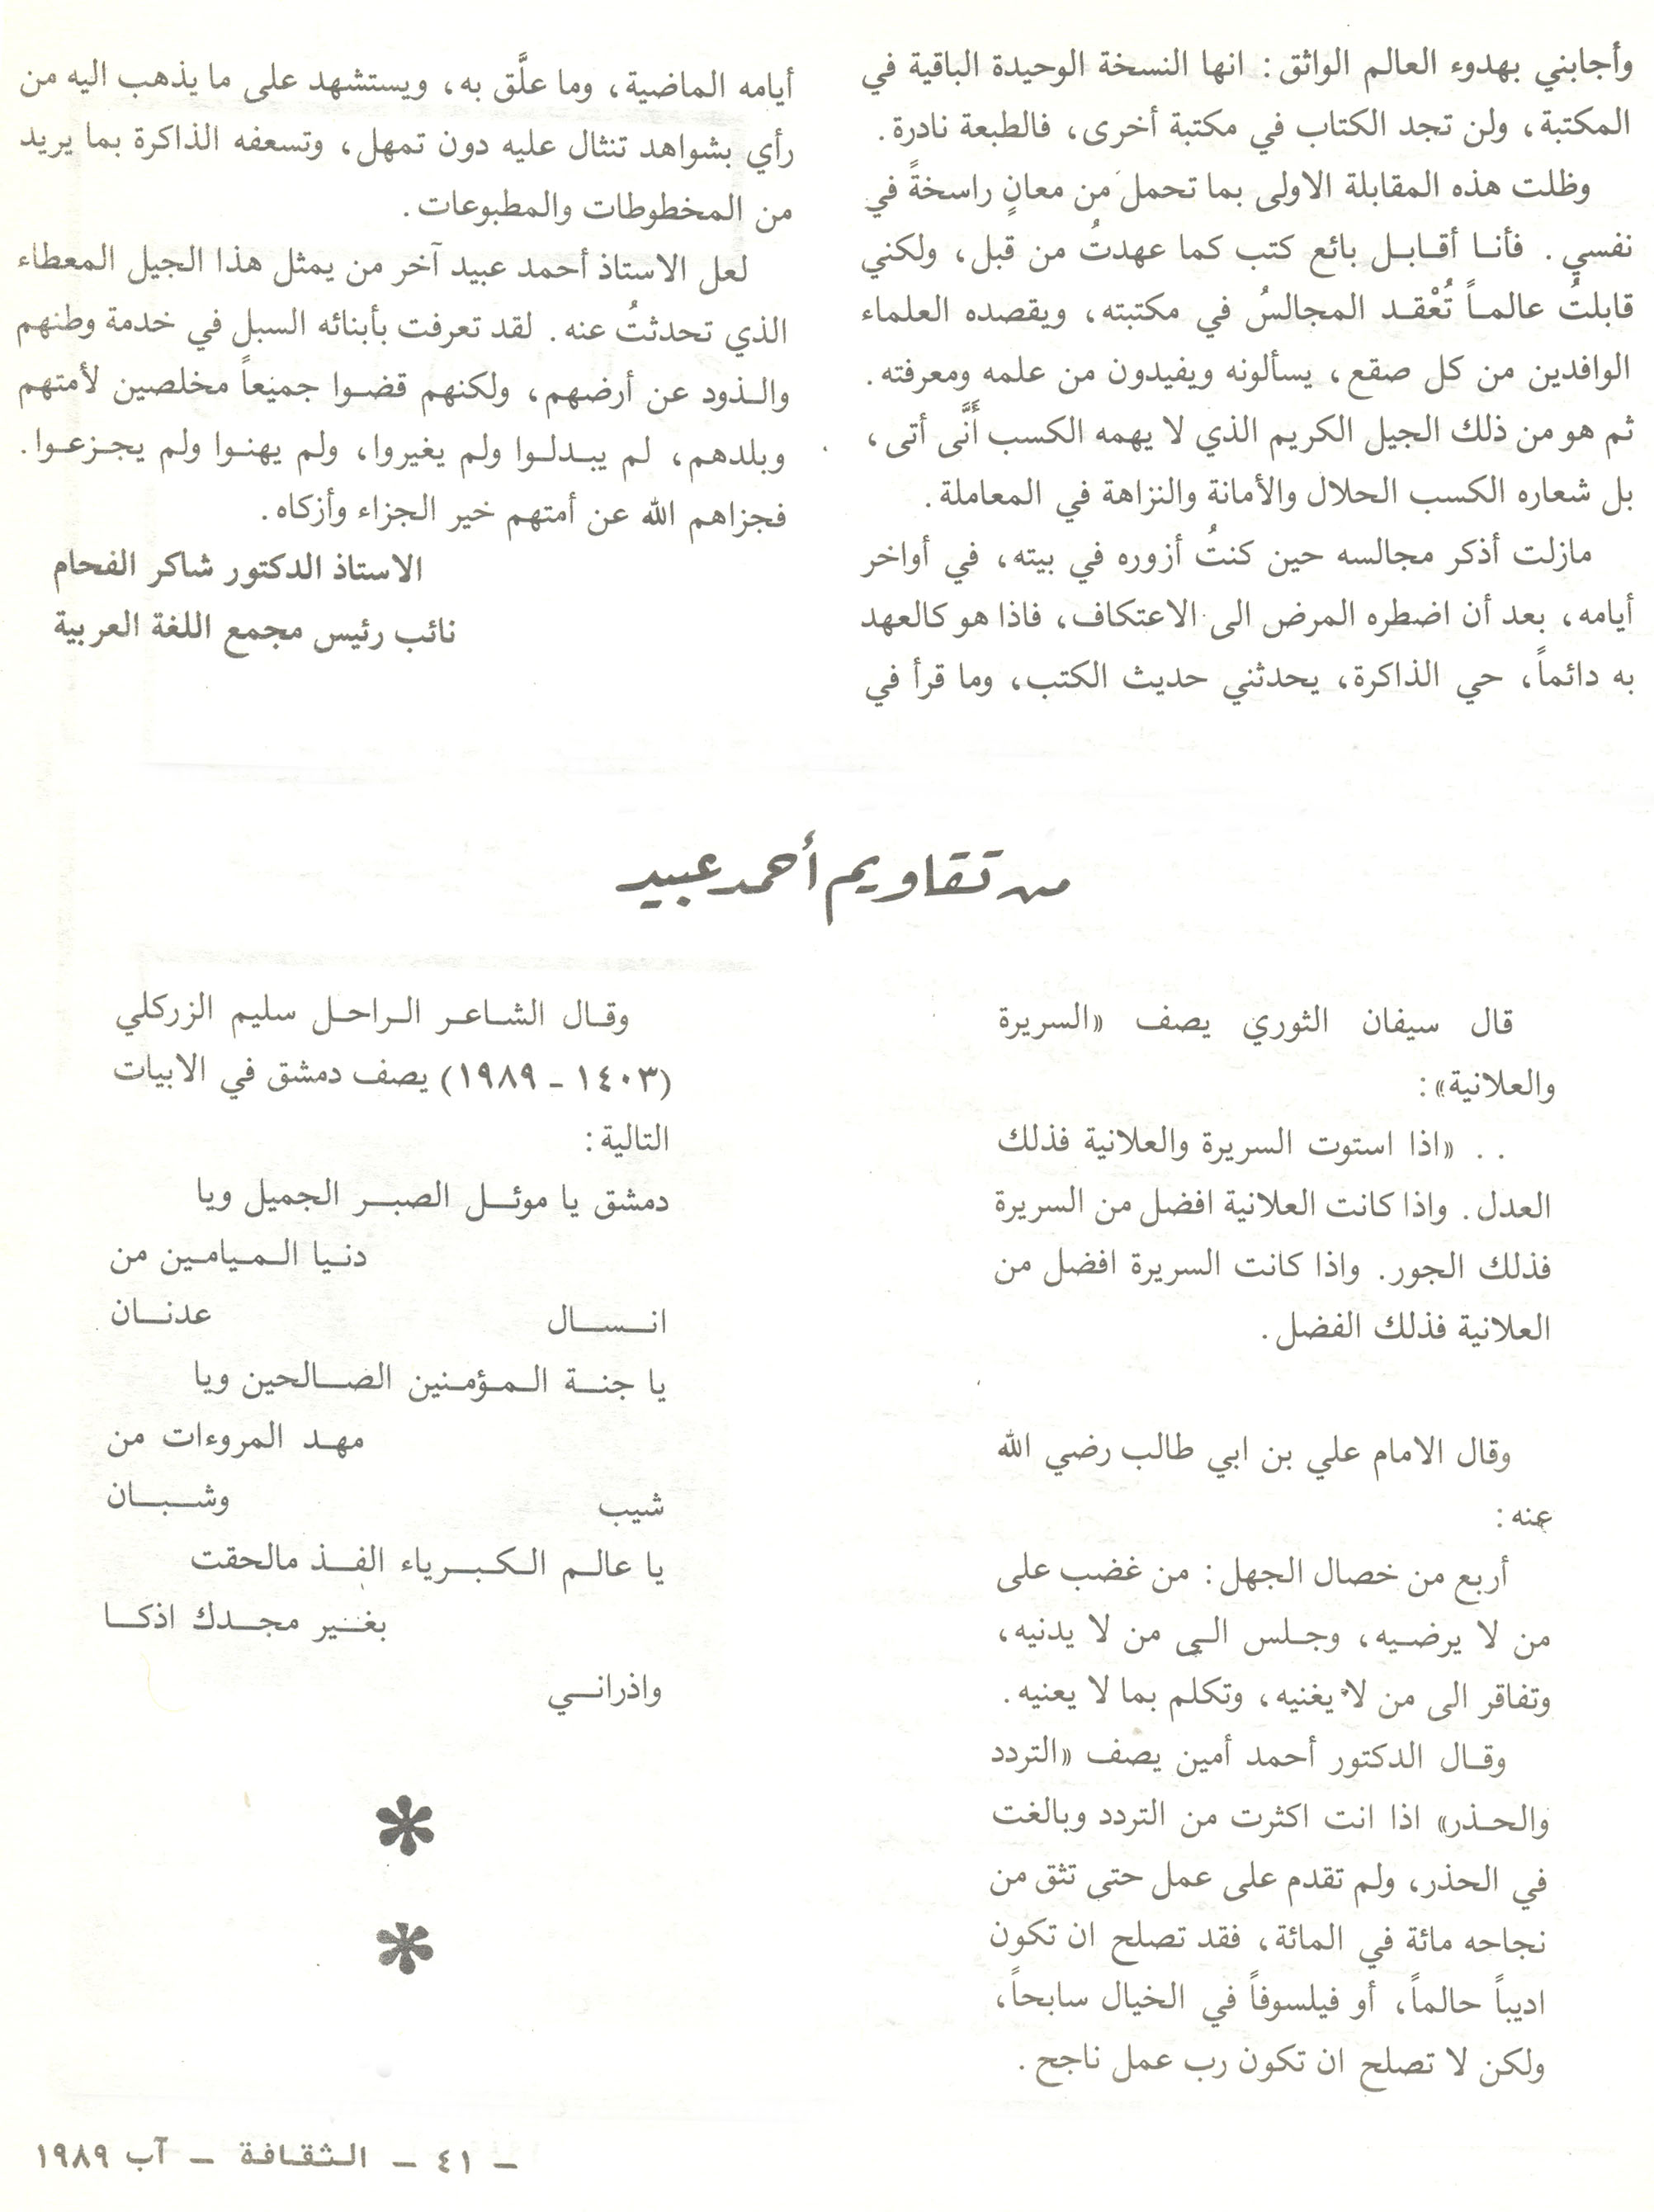 وأجابني بهدوء العالم الواثق: انها النسخة الوحيدة الباقية في
المكتبة، ولن تجد الكتاب في مكتبة أخرى، فالطبعة نادرة.
وظلت هذه المقابلة الاولى بما تحمل من معانٍ راسخةً في
نفسي. فأنا أقابل بائع كتب كما عهدتُ من قبل، ولكني
قابلتُ عالماً تُعْقد المجالسُ في مكتبته، ويقصده العلماء
الوافدين من كل صقع، يسألونه ويفيدون من علمه ومعرفته.
ثم هو من ذلك الجيل الكريم الذي لا يهمه الكسب أَنَّى أتى،
بل شعاره الكسب الحلال والأمانة والنزاهة في المعاملة.
مازلت أذكر مجالسه حين كنتُ أزوره في بيته، في أواخر
أيامه، بعد أن اضطره المرض الى الاعتكاف، فاذا هو كالعهد
به دائماً، حي الذاكرة، يحدثني حديث الكتب، وما قرأ في
أيامه الماضية، وما علَّق به، ويستشهد على ما يذهب اليه من
رأي بشواهد تنثال عليه دون تمهل، وتسعفه الذاكرة بما يريد
من المخطوطات والمطبوعات.
لعل الاستاذ أحمد عبيد آخر من يمثل هذا الجيل المعطاء
الذي تحدثتُ عنه. لقد تعرفت بأبنائه السبل في خدمة وطنهم
والذود عن أرضهم، ولكنهم قضوا جميعاً مخلصين لأمتهم
وبلدهم، لم يبدلوا ولم يغيروا، ولم يهنوا ولم يجزعوا.
فجزاهم الله عن أمتهم خير الجزاء وأزكاه.
الاستاذ الدكتور شاكر الفحام
نائب رئيس مجمع اللغة العربية
من تقاويم أحمد عبيد
قال سيفان الثوري يصف «السريرة
والعلانية»:
.. «اذا استوت السريرة والعلانية فذلك
العدل. واذا كانت العلانية افضل من السريرة
فذلك الجور. واذا كانت السريرة افضل من
العلانية فذلك الفضل.
وقال الامام علي بن ابي طالب رضي الله
عنه:
أربع من خصال الجهل: من غضب على
من لا يرضيه، وجلس الى من لا يدنيه،
وتفاقر الى من لا يغنيه، وتكلم بما لا يعنيه.
وقال الدكتور أحمد أمين يصف «التردد
والحذر» اذا انت اكثرت من التردد وبالغت
في الحذر، ولم تقدم على عمل حتى تثق من
نجاحه مائة في المائة، فقد تصلح ان تكون
اديباً حالماً، أو فيلسوفاً في الخيال سابحاً،
ولكن لا تصلح ان تكون رب عمل ناجح.
وقال الشاعر الراحل سليم الزركلي
(١٤٠٣ - ١٩٨٩) يصف دمشق في الابيات
التالية:
دمشق يا موئل الصبر الجميل ويا
دنيا الميامين من
انسال عدنان
يا جنة المؤمنين الصالحين ويا
مهد المروءات من
شيب وشبان
يا عالم الكبرياء الفذ مالحقت
بغير مجدك اذكا
واذراني
*
*
- ٤١ - الثقافة - آب ١٩٨٩